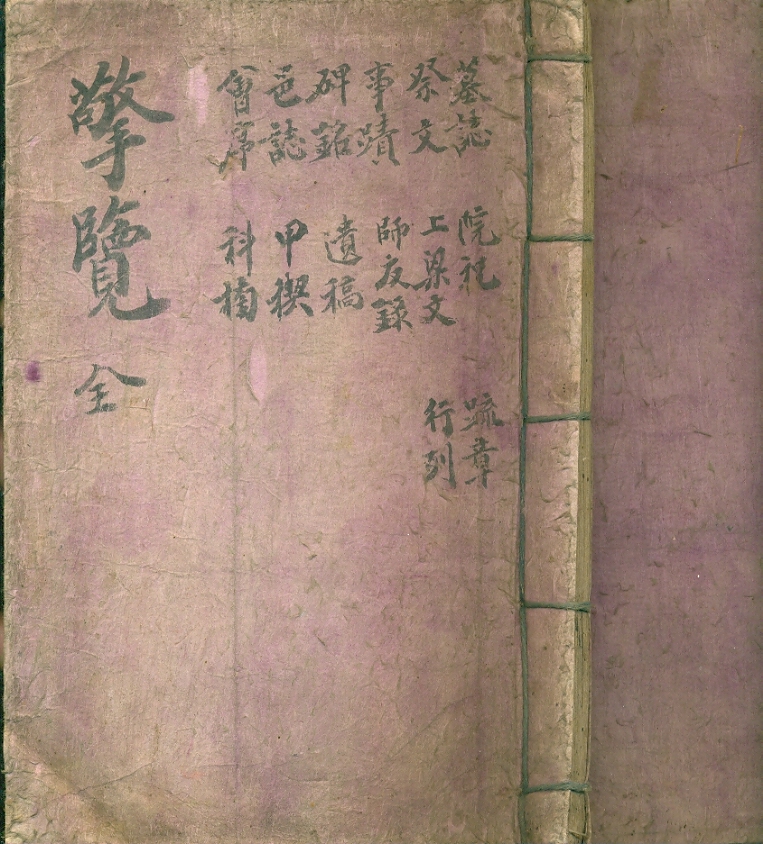 墓誌 院祀 疏章
祭文 上梁文 行列
事蹟 師友錄
碑銘 遺稿
邑誌 甲禊
會序 科
擎覽 全